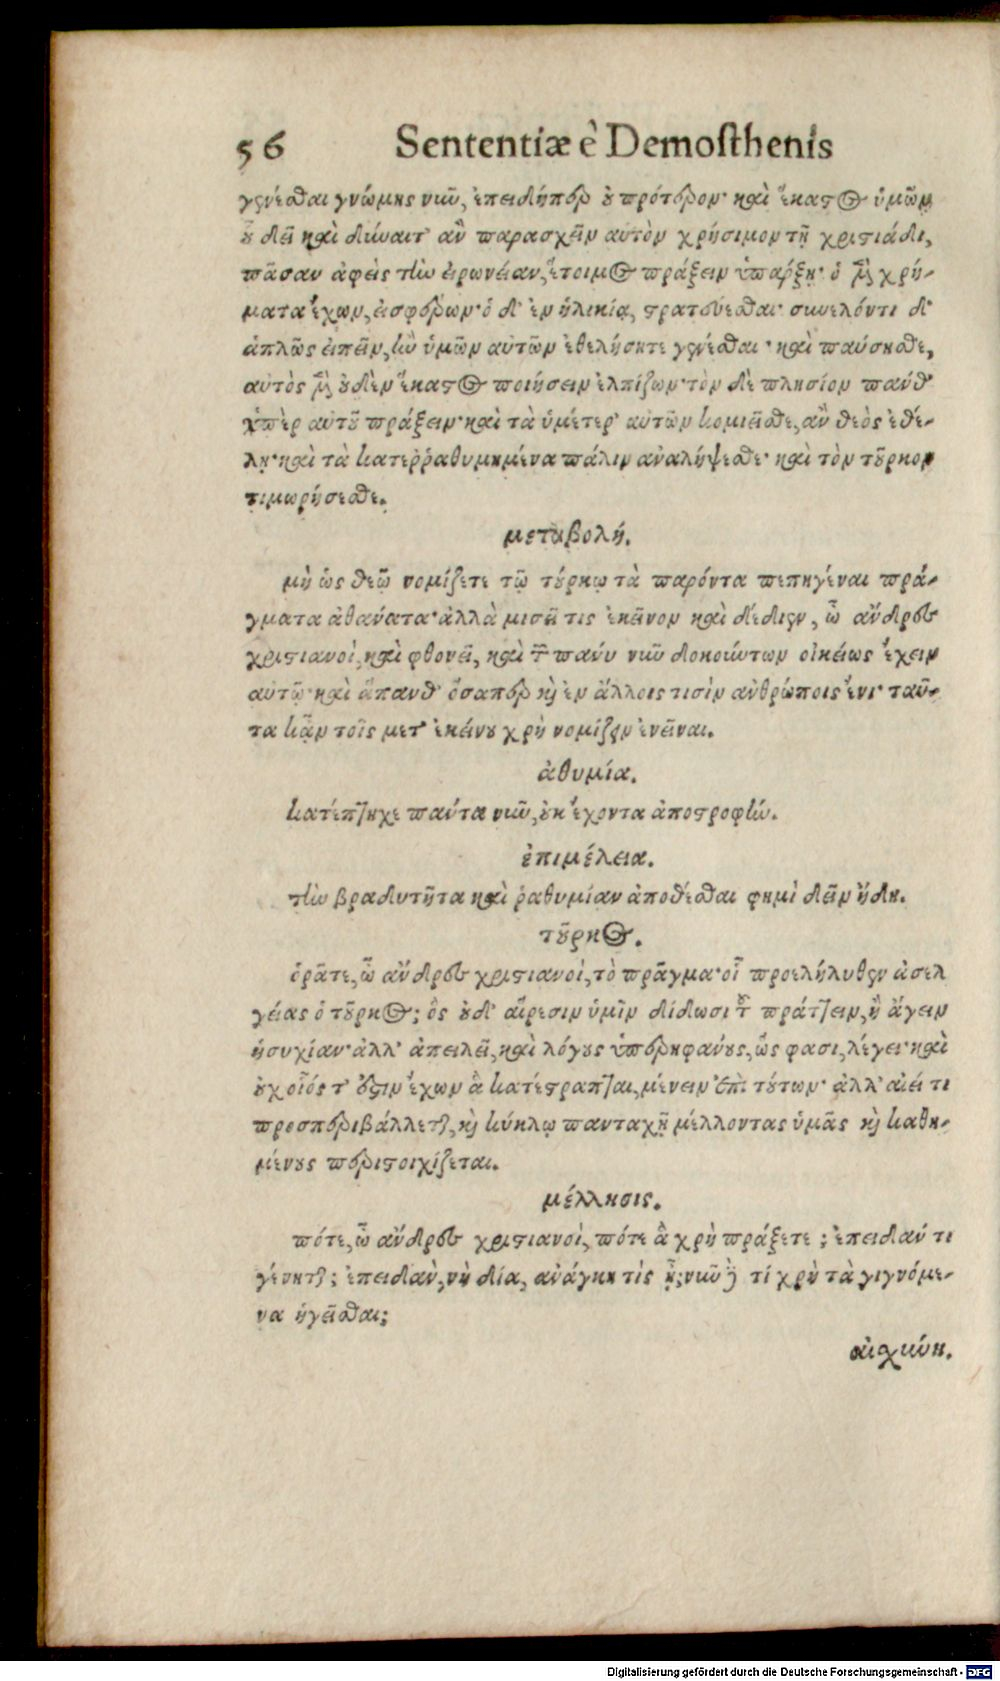 56 Sententiæ è Demosthenis
γενέσθαι γνώμης νιῦ, ἐπειδήπερ ȣ πρότερον· καὶ ἕκαστος ὑμῶν,
ȣ̃ δεῖ καὶ δύναιτ' ἂν παρασχεῖν αὑτὸν χρήσιμον τῇ χριστιάδι,
πᾶσαν ἀφεὶς τὴν εἰρωνείαν, ἕτοιμος πράξειν ὑπάρξῃ· ὁ μὲν χρή-
ματα ἔχων, εἰσφέρων· ὁ δ' ἐν ἡλικίᾳ, στρατεύεσθαι· συνελόντι δ'
ἁπλῶς εἰπεῖν, ἢν ὑμῶν αὐτῶν ἐθελήσητε γενέσθαι· καὶ παύσησθε,
αὐτὸς μὲν ȣδὲν ἕκαστος ποιήσειν ἐλπίζων· τὸν δὲ πλησίον πάνθ'
ὑπὲρ αὐτȣ͂ πράξειν· καὶ τὰ ὑμέτερ' αὐτῶν κομιεῖσθε, ἂν θεὸς ἐθέ-
λῃ· καὶ τὰ κατερῤῥαθυμημένα πάλιν ἀναλήψεσθε· καὶ τὸν τȣ͂ρκον
τιμωρήσεσθε.
μεταβολή.
μὴ ὡς θεῷ νομίζετε τῷ τȣ́ρκῳ τὰ παρόντα πεπηγέναι πρά-
γματα ἀθάνατα· ἀλλὰ μισεῖ τις ἐκεῖνον καὶ δέδιεν, ὦ ἄνδρες
χριστιανοὶ, καὶ φθονεῖ, καὶ τῶν πάνυ νῦν δοκούντων οἰκείως ἔχειν
αὐτῷ· καὶ ἅπανθ' ὅσαπερ κὴ ἐν ἄλλοις τισὶν ἀνθρώποις ἔνι· ταῦ-
τα κἂν τοῖς μετ' ἐκείνȣ χρὴ νομίζειν ἐνεῖναι.
ἀθυμία.
κατέπτηχε πάντα νῦν, ȣκ ἔχοντα ἀποστροφήν.
ἐπιμέλεια.
τὴν βραδυτῆτα καὶ ῥαθυμίαν ἀποθέσθαι φημὶ δεῖν ἤδη.
τȣ͂ρκος.
ὁρᾶτε, ὦ ἄνδρες χριστιανοὶ, τὸ πρᾶγμα· οἷ προελήλυθεν ἀσελ
γείας ὁ τȣ͂ρκος; ὃς ȣδ' αἵρεσιν ὑμῖν δίδωσι τȣ͂ πράττειν, ἢ ἄγειν
ἡσυχίαν· ἀλλ' ἀπειλεῖ, καὶ λόγȣς ὑπερηφάνȣς, ὥς φασι, λέγει· καὶ
ȣχ οἷός τ' ȣστιν ἔχων ἃ κατέστραπται, μένειν ἐπὶ τȣ́των· ἀλλ' αἰεί τι
προσπεριβάλλεται, καὶ κύκλῳ πανταχῇ μέλλοντας ὑμᾶς καὶ καθη-
μένȣς περιστοιχίζεται.
μέλλησις.
πότε, ὦ ἄνδρες χριστιανοὶ, πότε ἃ χρὴ πράξετε; ἐπειδάν τι
γένηται; ἐπειδὰν, νὴ δία, ἀνάγκη τὶς ᾖ; νῦν δὲ τί χρὴ τὰ γιγνόμε-
να ἡγεῖσθαι;
αἰσχύνη.
Digitalisierung gefördert durch die Deutsche Forschungsgemeinschaft - DFG